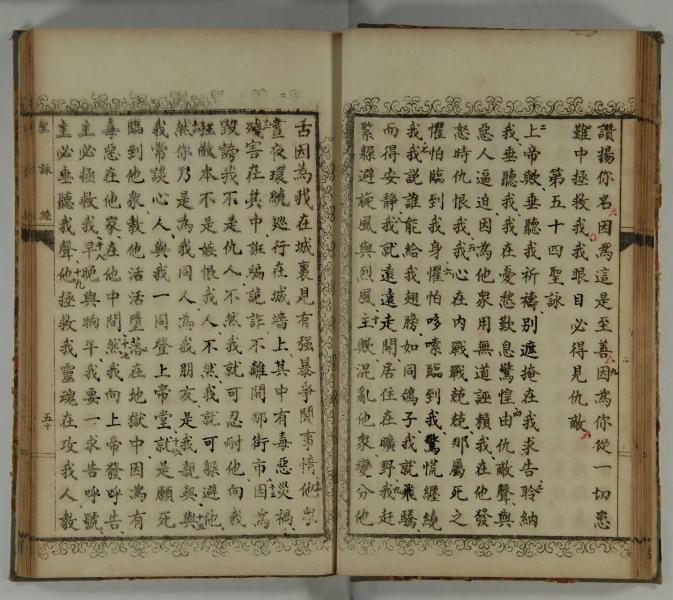 讚揚你名因為這是至善因為你從一切患
難中拯救我我眼目必得見仇敵
第五十四聖詠
上帝歟垂聽我祈禱别遮掩在我求告聆納
我垂聽我我在憂愁歎息驚惶由仇敵聲與
惡人逼迫因為他衆用無道誣賴我在他發
怒時仇恨我我心在内戰戰兢兢那屬死之
懼怕臨到我身懼怕哆嗦臨到我驚慌纏繞
我我說誰能給我翅膀如同鴿子我就飛騰
而得安静我就遠遠走開居住在曠野我赶
緊躲避旋風與烈風主歟混亂他衆變分他
舌因為我在城裏見有强暴爭鬧事情他衆
晝夜環繞巡行在城墻上其中有毒惡災禍
殘害在其中誆騙詭詐不離開那街市因為
毀謗我不是仇人不然我就可忍耐他向我
狂傲本不是嫉恨我人不然我就可躲避他
然你乃是為我同人為我朋友是我親與
我常談心人與我一同登上帝堂就是願死
臨到他衆教他活活墮落在地獄中因為有
毒惡在他家在他中間然我向上帝發呼告
主必拯救我早晚與晌午我要一求告呼號
主必垂聽我聲他拯救我靈魂在攻我人教
聖詠
五十